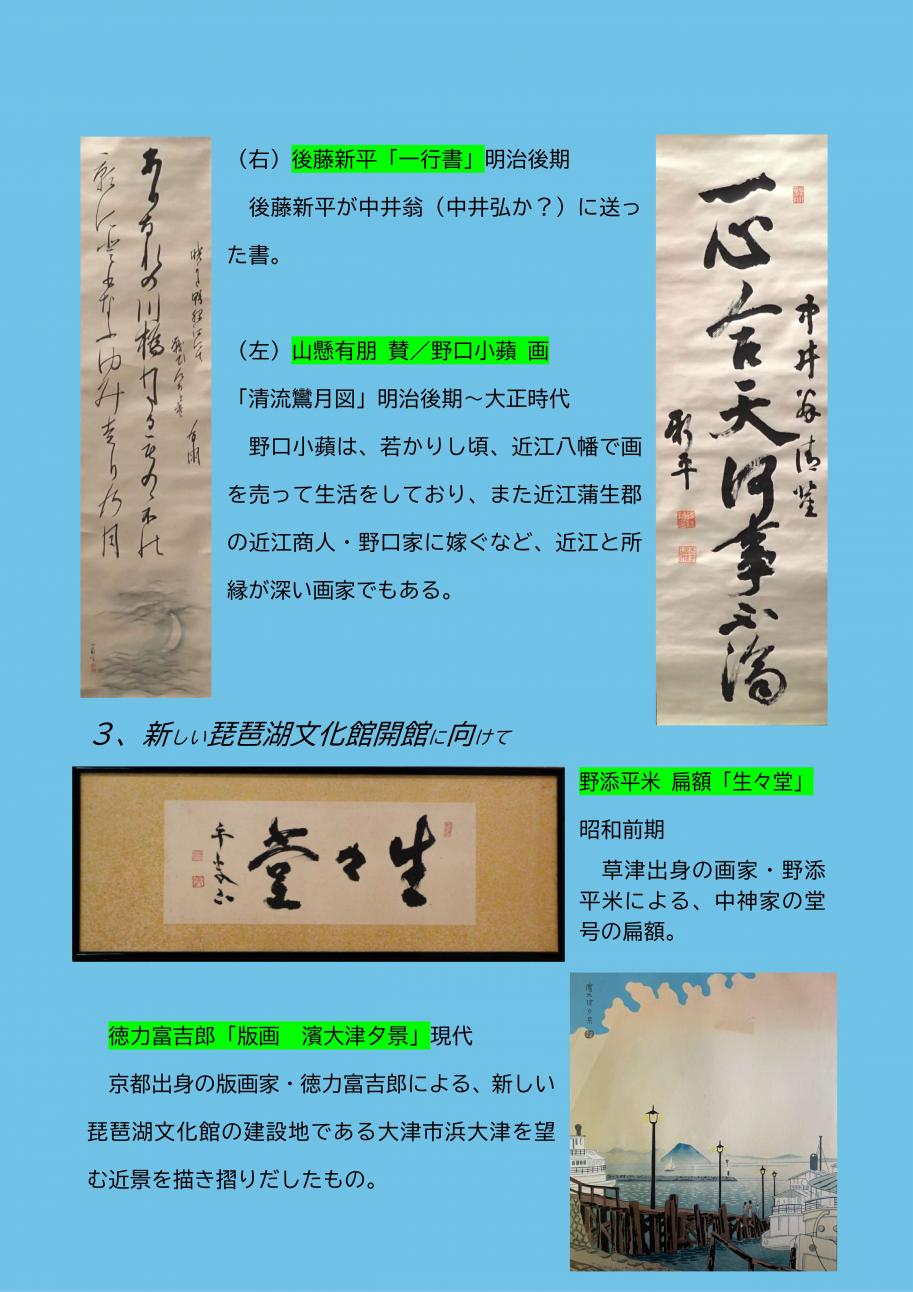 （右）後藤新平「一行書」明治後期
　後藤新平が中井翁（中井弘か？）に送っ
た書。
（左）山懸有朋 賛／野口小蘋 画
「清流鸞月図」明治後期～大正時代
　野口小蘋は、若かりし頃、近江八幡で画
を売って生活をしており、また近江蒲生郡
の近江商人・野口家に嫁ぐなど、近江と所
縁が深い画家でもある。
中井翁清鑒
一心合天何事不濟
新平
３、新しい琵琶湖文化館開館に向けて
生々堂
野添平米 扁額「生々堂」
昭和前期
　草津出身の画家・野添
平米による、中神家の堂
号の扁額。
徳力富吉郎「版画　濱大津夕景」現代
　京都出身の版画家・徳力富吉郎による、新しい
琵琶湖文化館の建設地である大津市浜大津を望
む近景を描き摺りだしたもの。
濱大津夕景